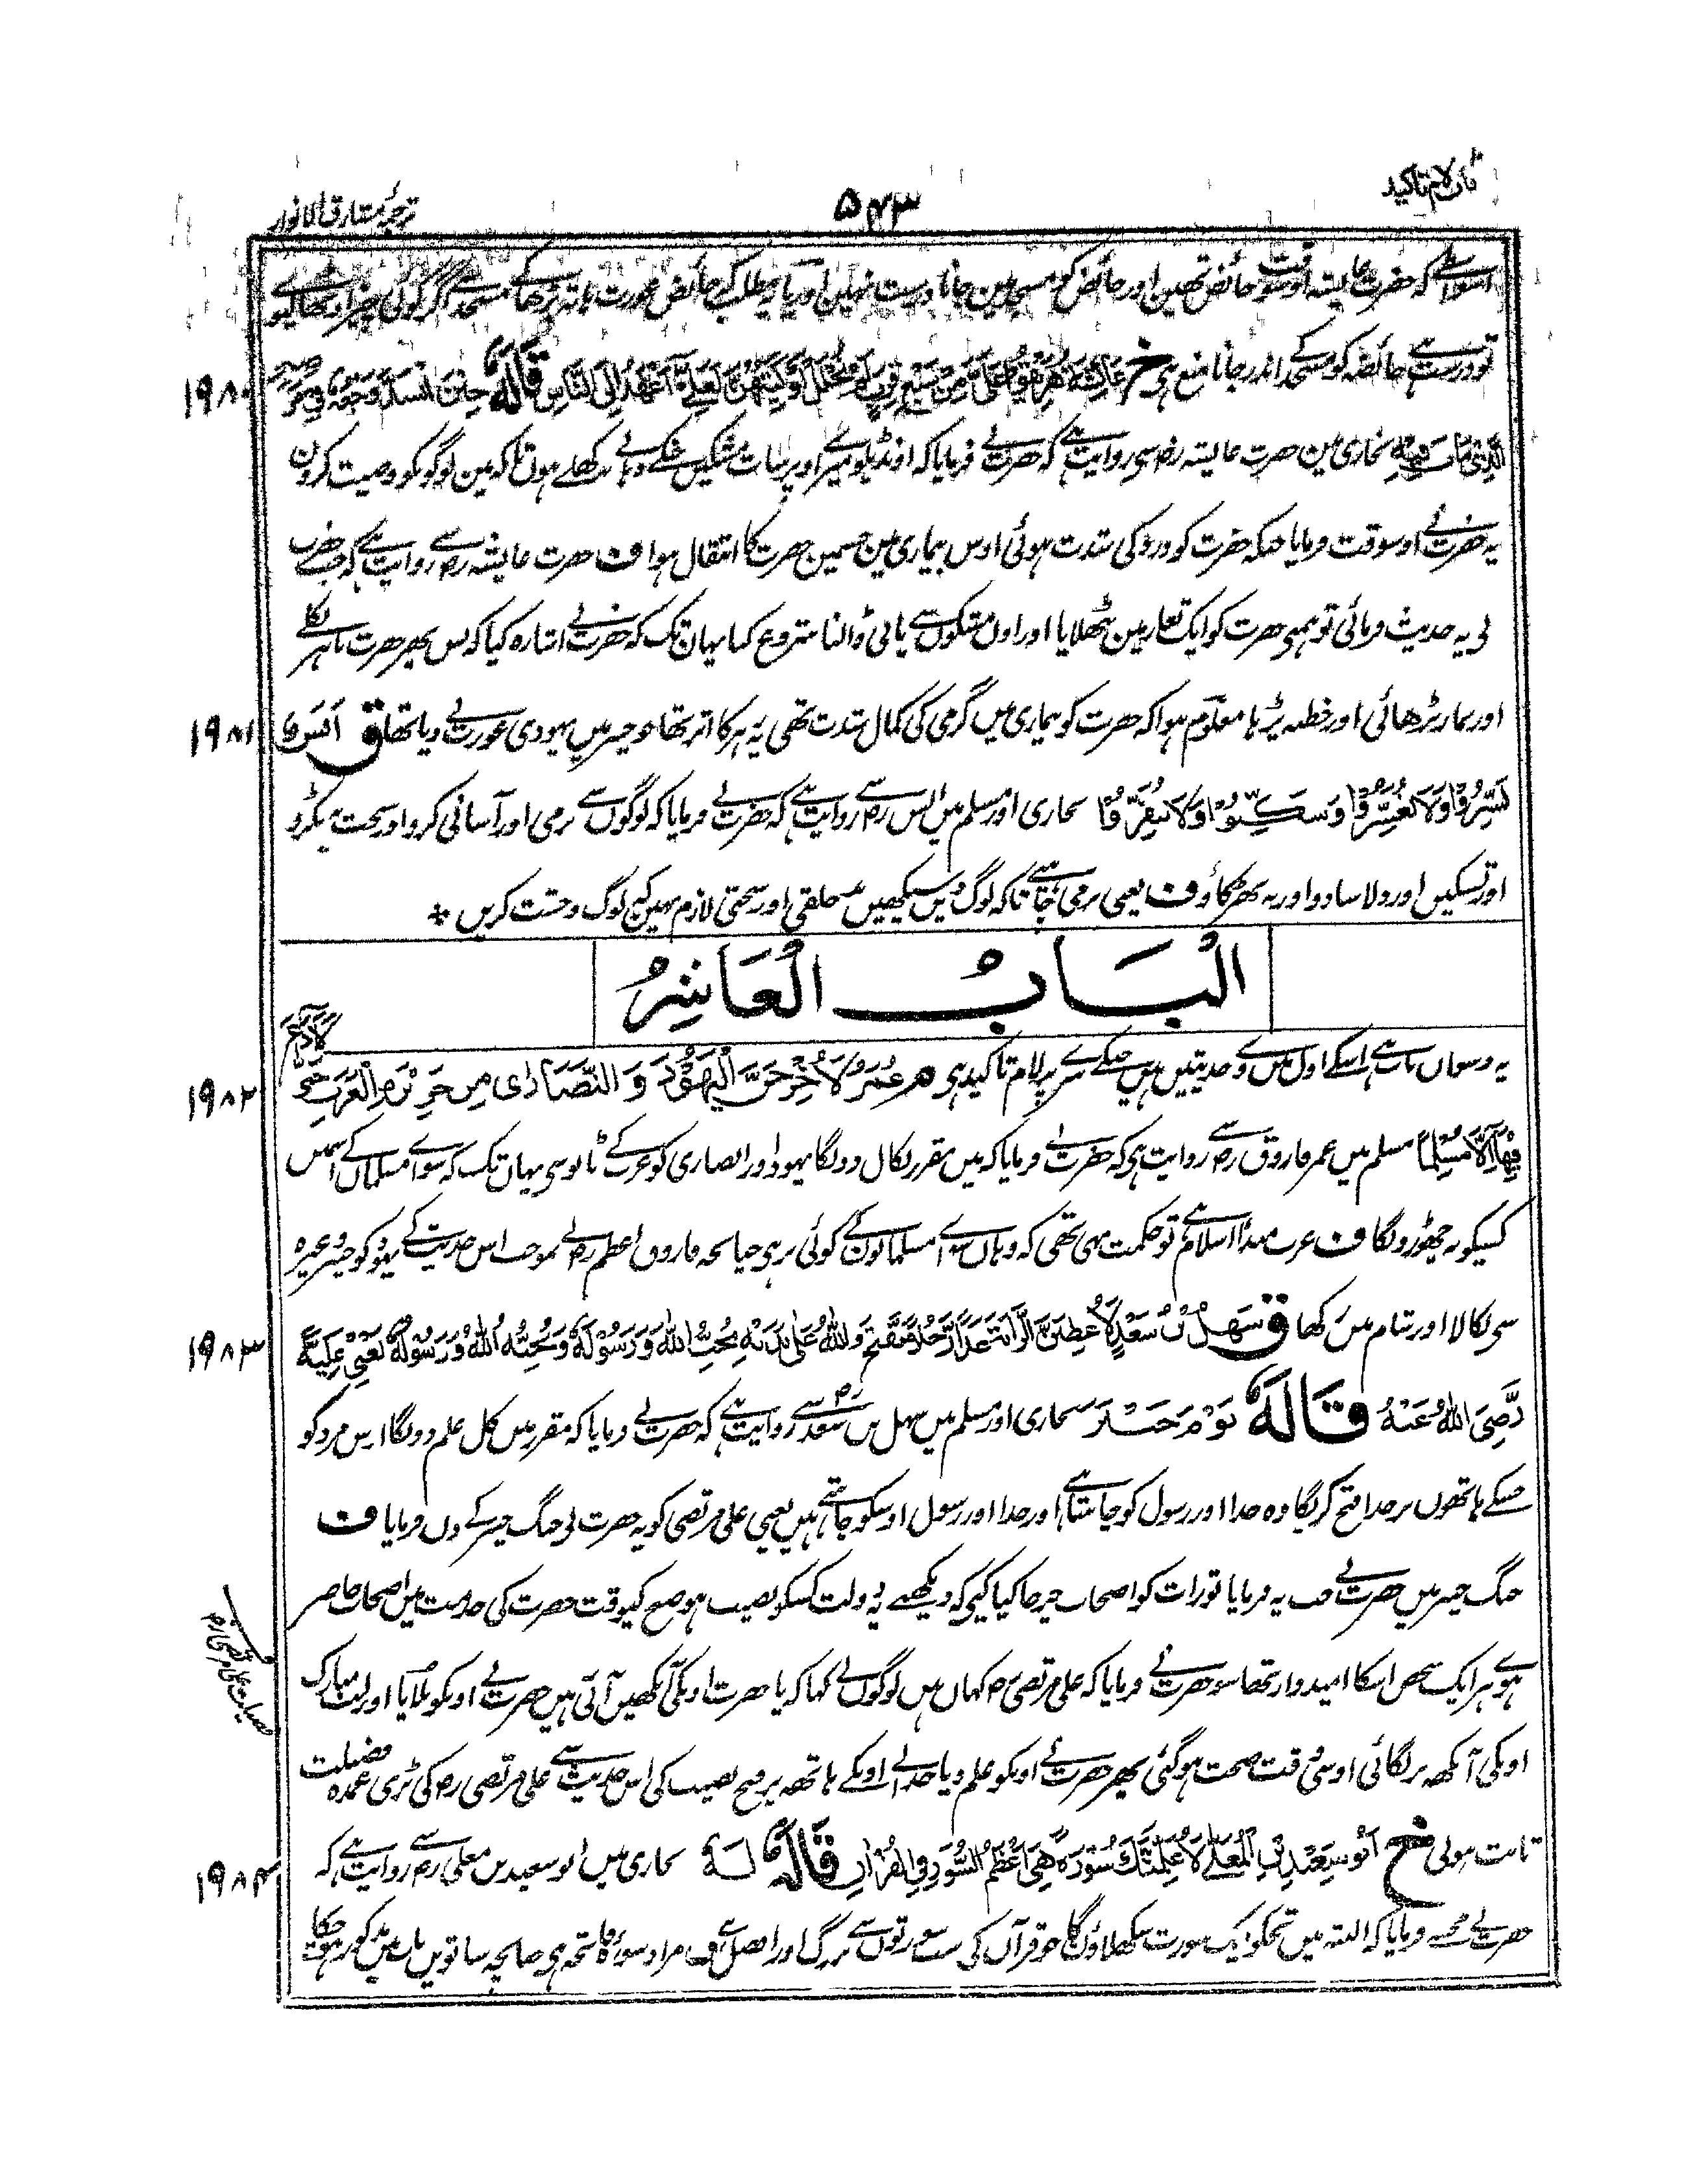 باب لام تاکید
۵۴۳
ترجمۂ مشارق الانوار
اسواسطے کہ حضرت عایشہ اوسوقت حائض تھین اور حائض کو مسجد مین جانا درست نہین اور یا یہ مطلب کہ حائض عورت ہاتھ بڑھا کے مسجد سے اگر کوئی چیز اوٹھا لیوے
تو درست ہے حائضہ کو مسجد کے اندر جانا منع ہی خ عَائِشَةُ هَرِيْقُوْا عَلَيَّ مِنْ سَبْعِ قِرَبٍ لَمْ تُحْلَلْ أَوْكِيَتُهُنَّ لَعَلِّيْ أَعْهَدُ إِلَى النَّاسِ قَالَهُ حِيْنَ اشْتَدَّ وَجَعُهُ فِيْ مَرَضِهِ
۱۹۸۰
الَّذِيْ مَاتَ فِيْهِ بخاری مین حضرت عایشہ رضہ سی روایت ہے کہ حضرت نے فرمایا کہ اونڈیلو میرے اوپر سات مشکین جنکے دہانے نہ کھلے ہون تاکہ مین لوگوکو وصیت کرون
یہ حضرت نے اوسوقت فرمایا جبکہ حضرت کو درد کی شدت ہوئی اوس بیماری مین جسمین حضرت کا انتقال ہوا ف حضرت عایشہ رضہ سے روایت ہے کہ جب حضرت
نی یہ حدیث فرمائی تو ہمنی حضرت کو ایک تغار مین بٹھلایا اور اون مشکون سے پانی ڈالنا شروع کیا یہان تک کہ حضرت نے اشارہ کیا کہ بس پھر حضرت باہر نکلے
اور نماز پڑھائی اور خطبہ پڑہا معلوم ہوا کہ حضرت کو بیماری میں گرمی کی کمال شدت تھی یہ زہر کا اثر تھا جو خیبر میں یہودی عورت نے دیا تھا ق اَنَسٌ
۱۹۸۱
يَسِّرُوْا وَلَا تُعَسِّرُوْا وَسَكِّنُوْا وَلَا تُنَفِّرُوْا بخاری اور مسلم میں انس رضہ سے روایت ہے کہ حضرت نے فرمایا کہ لوگوں سے نرمی اور آسانی کرو اور سخت نہ پکڑو
اور تسکین اور دلاسا دو اور نہ بھڑکاؤ ف یعنی نرمی چاہئے تاکہ لوگ دین سیکھیں بدخلقی اور سختی لازم نہین کہ لوگ وحشت کریں *
الْبَابُ الْعَاشِرُ
یہ دسواں باب ہے اسکے اول میں وے حدیثیں ہیں جنکے سرے پر لام تاکید ہی م عُمَرُ لَأُخْرِجَنَّ الْيَهُوْدَ وَالنَّصَارٰى مِنْ جَزِيْرَةِ الْعَرَبِ حَتّٰى لَا أَدَعَ
۱۹۸۲
فِيْهَا إِلَّا مُسْلِمًا مسلم میں عمر فاروق رضہ سے روایت ہی کہ حضرت نے فرمایا کہ میں مقرر نکال دونگا یہود اور نصاری کو عرب کے ٹاپو سی یہاں تک کہ سوائے مسلمان کے اسمیں
کسیکو نہ چھوڑونگا ف عرب مبدا اسلام ہے تو حکمت یہی تھی کہ وہاں سوائے مسلمانون کے کوئی نرہی چنانچہ فاروق اعظم رضہ نے بموجب اس حدیث کے یہود کو خیبر وغیرہ
سی نکالا اور شام میں رکھا ق سَهْلُ بْنُ سَعْدٍ لَأُعْطِيَنَّ الرَّايَةَ غَدًا رَجُلًا يَفْتَحُ اللّٰهُ عَلٰى يَدَيْهِ يُحِبُّ اللّٰهَ وَرَسُوْلَهُ وَيُحِبُّهُ اللّٰهُ وَرَسُوْلُهُ يَعْنِيْ عَلِيًّا
۱۹۸۳
رَضِيَ اللّٰهُ عَنْهُ قَالَهُ يَوْمَ خَيْبَرَ بخاری اور مسلم میں سہل بن سعد رضہ سے روایت ہے کہ حضرت نے فرمایا کہ مقرر میں کل علم دونگا اس مرد کو
جسکے ہاتھوں پر خدا فتح کریگا وہ خدا اور رسول کو چاہتا ہے اور خدا اور رسول اوسکو چاہتے ہیں یعنی علی مرتضی کو یہ حضرت نی جنگ خیبر کے دن فرمایا ف
جنگ خیبر میں حضرت نے جب یہ فرمایا تو رات کو اصحاب چرچا کیا کیے کہ دیکھیے یہ دولت کسکو نصیب ہو صبح کیوقت حضرت کی خدمت میں اصحاب حاضر
ہوئے ہر ایک شخص اسکا امیدوار تھا سو حضرت نے فرمایا کہ علی مرتضی رضہ کہاں ہیں لوگوں نے کہا کہ یا حضرت اونکی آنکھیں آئی ہیں حضرت نے اونکو بلایا اور لب مبارک
فضیلت علی مرتضی رضہ
اونکی آنکھ پر لگائی اوسی وقت صحت ہو گئی پھر حضرت نے اونکو علم دیا خدا نے اونکے ہاتھ پر فتح نصیب کی اس حدیث سے علی مرتضی رضہ کی بڑی عمدہ فضیلت
ثابت ہوئی خ اَبُوْ سَعِيْدِ بْنُ الْمُعَلّٰى لَأُعَلِّمَنَّكَ سُوْرَةً هِيَ أَعْظَمُ السُّوَرِ فِي الْقُرْاٰنِ قَالَهُ لَهُ بخاری میں ابو سعید بن معلی رضہ سے روایت ہے کہ
۱۹۸۴
حضرت نے مجھسے فرمایا کہ البتہ میں تجکو ایک سورت سکھلاؤنگا جو قرآن کی سب سورتوں سے بزرگ اور افضل ہے ف مراد سورۂ فاتحہ ہی چنانچہ ساتویں باب میں مذکور ہو چکا